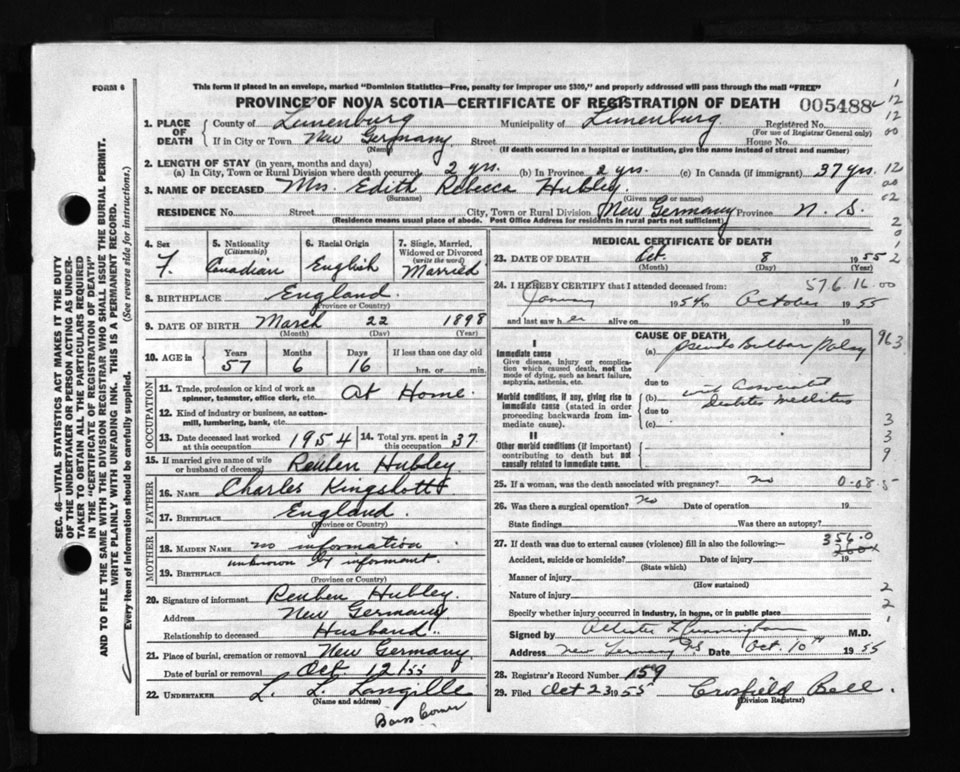 FORM 6
This form if placed in an envelope, marked "Dominion Statistics—Free, penalty for improper use $300," and properly addressed will pass through the mail "FREE"
PROVINCE OF NOVA SCOTIA—CERTIFICATE OF REGISTRATION OF DEATH 005488
1. PLACE OF DEATH
County of Lunenburg Municipality of Lunenburg Registered No.
(For use of Registrar General only)
If in City or Town New Germany Street House No.
(Name) (If death occurred in a hospital or institution, give the name instead of street and number)
2. LENGTH OF STAY (in years, months and days)
(a) In City, Town or Rural Division where death occurred 2 yrs. (b) In Province 2 yrs. (c) In Canada (if immigrant) 37 yrs.
3. NAME OF DECEASED Mrs. Edith Rebecca Hubley
(Surname) (Given name or names)
RESIDENCE No. Street City, Town or Rural Division New Germany Province N. S.
(Residence means usual place of abode. Post Office Address for residents in rural parts not sufficient)
4. Sex F.
5. Nationality (Citizenship) Canadian
6. Racial Origin English
7. Single, Married, Widowed or Divorced (write the word) Married
8. BIRTHPLACE England
(Province or Country)
9. DATE OF BIRTH March 22 1898
(Month) (Day) (Year)
10. AGE in Years Months Days If less than one day old
57 6 16 hrs. or min.
OCCUPATION
11. Trade, profession or kind of work as spinner, teamster, office clerk, etc. At Home.
12. Kind of industry or business, as cotton-mill, lumbering, bank, etc.
13. Date deceased last worked at this occupation 1954
14. Total yrs. spent in this occupation 37
15. If married give name of wife or husband of deceased Reuben Hubley
FATHER
16. NAME Charles Kingshott
17. BIRTHPLACE England
(Province or Country)
MOTHER
18. MAIDEN NAME no information
19. BIRTHPLACE unknown by informant.
(Province or Country)
20. Signature of informant Reuben Hubley.
Address New Germany
Relationship to deceased Husband
21. Place of burial, cremation or removal New Germany
Date of burial or removal Oct 12 1955
22. UNDERTAKER L. L. Langille
(Name and address)
Barss Corner
MEDICAL CERTIFICATE OF DEATH
23. DATE OF DEATH Oct. 8 1955
(Month) (Day) (Year)
24. I HEREBY CERTIFY that I attended deceased from: 57.6.16.00
January 1954 to October 1955
and last saw her alive on 19
CAUSE OF DEATH
I
Immediate cause
Give disease, injury or complication which caused death, not the mode of dying, such as heart failure, asphyxia, asthenia, etc.
(a) Pseudo Bulbar Palsy 963
due to
Morbid conditions, if any, giving rise to immediate cause (stated in order proceeding backwards from immediate cause).
(b) with Associated Diabetes Mellitus
due to
(c)
II
Other morbid conditions (if important) contributing to death but not causally related to immediate cause.
25. If a woman, was the death associated with pregnancy? no
26. Was there a surgical operation? no Date of operation 19
State findings Was there an autopsy?
27. If death was due to external causes (violence) fill in also the following:— 356.0
Accident, suicide or homicide? Date of injury 19
(State which)
Manner of injury
(How sustained)
Nature of injury
Specify whether injury occurred in industry, in home, or in public place
Signed by Cunningham M.D.
Address New Germany NS Date Oct. 10th 1955
28. Registrar's Record Number 159
29. Filed Oct 23 1955 Crosfield Bell.
(Division Registrar)
SEC. 46—VITAL STATISTICS ACT MAKES IT THE DUTY
OF THE UNDERTAKER OR PERSON ACTING AS UNDERTAKER TO OBTAIN ALL THE PARTICULARS REQUIRED
IN THE "CERTIFICATE OF REGISTRATION OF DEATH"
AND TO FILE THE SAME WITH THE DIVISION REGISTRAR WHO SHALL ISSUE THE BURIAL PERMIT.
WRITE PLAINLY WITH UNFADING INK. THIS IS A PERMANENT RECORD.
Every item of information should be carefully supplied. (See reverse side for instructions.)